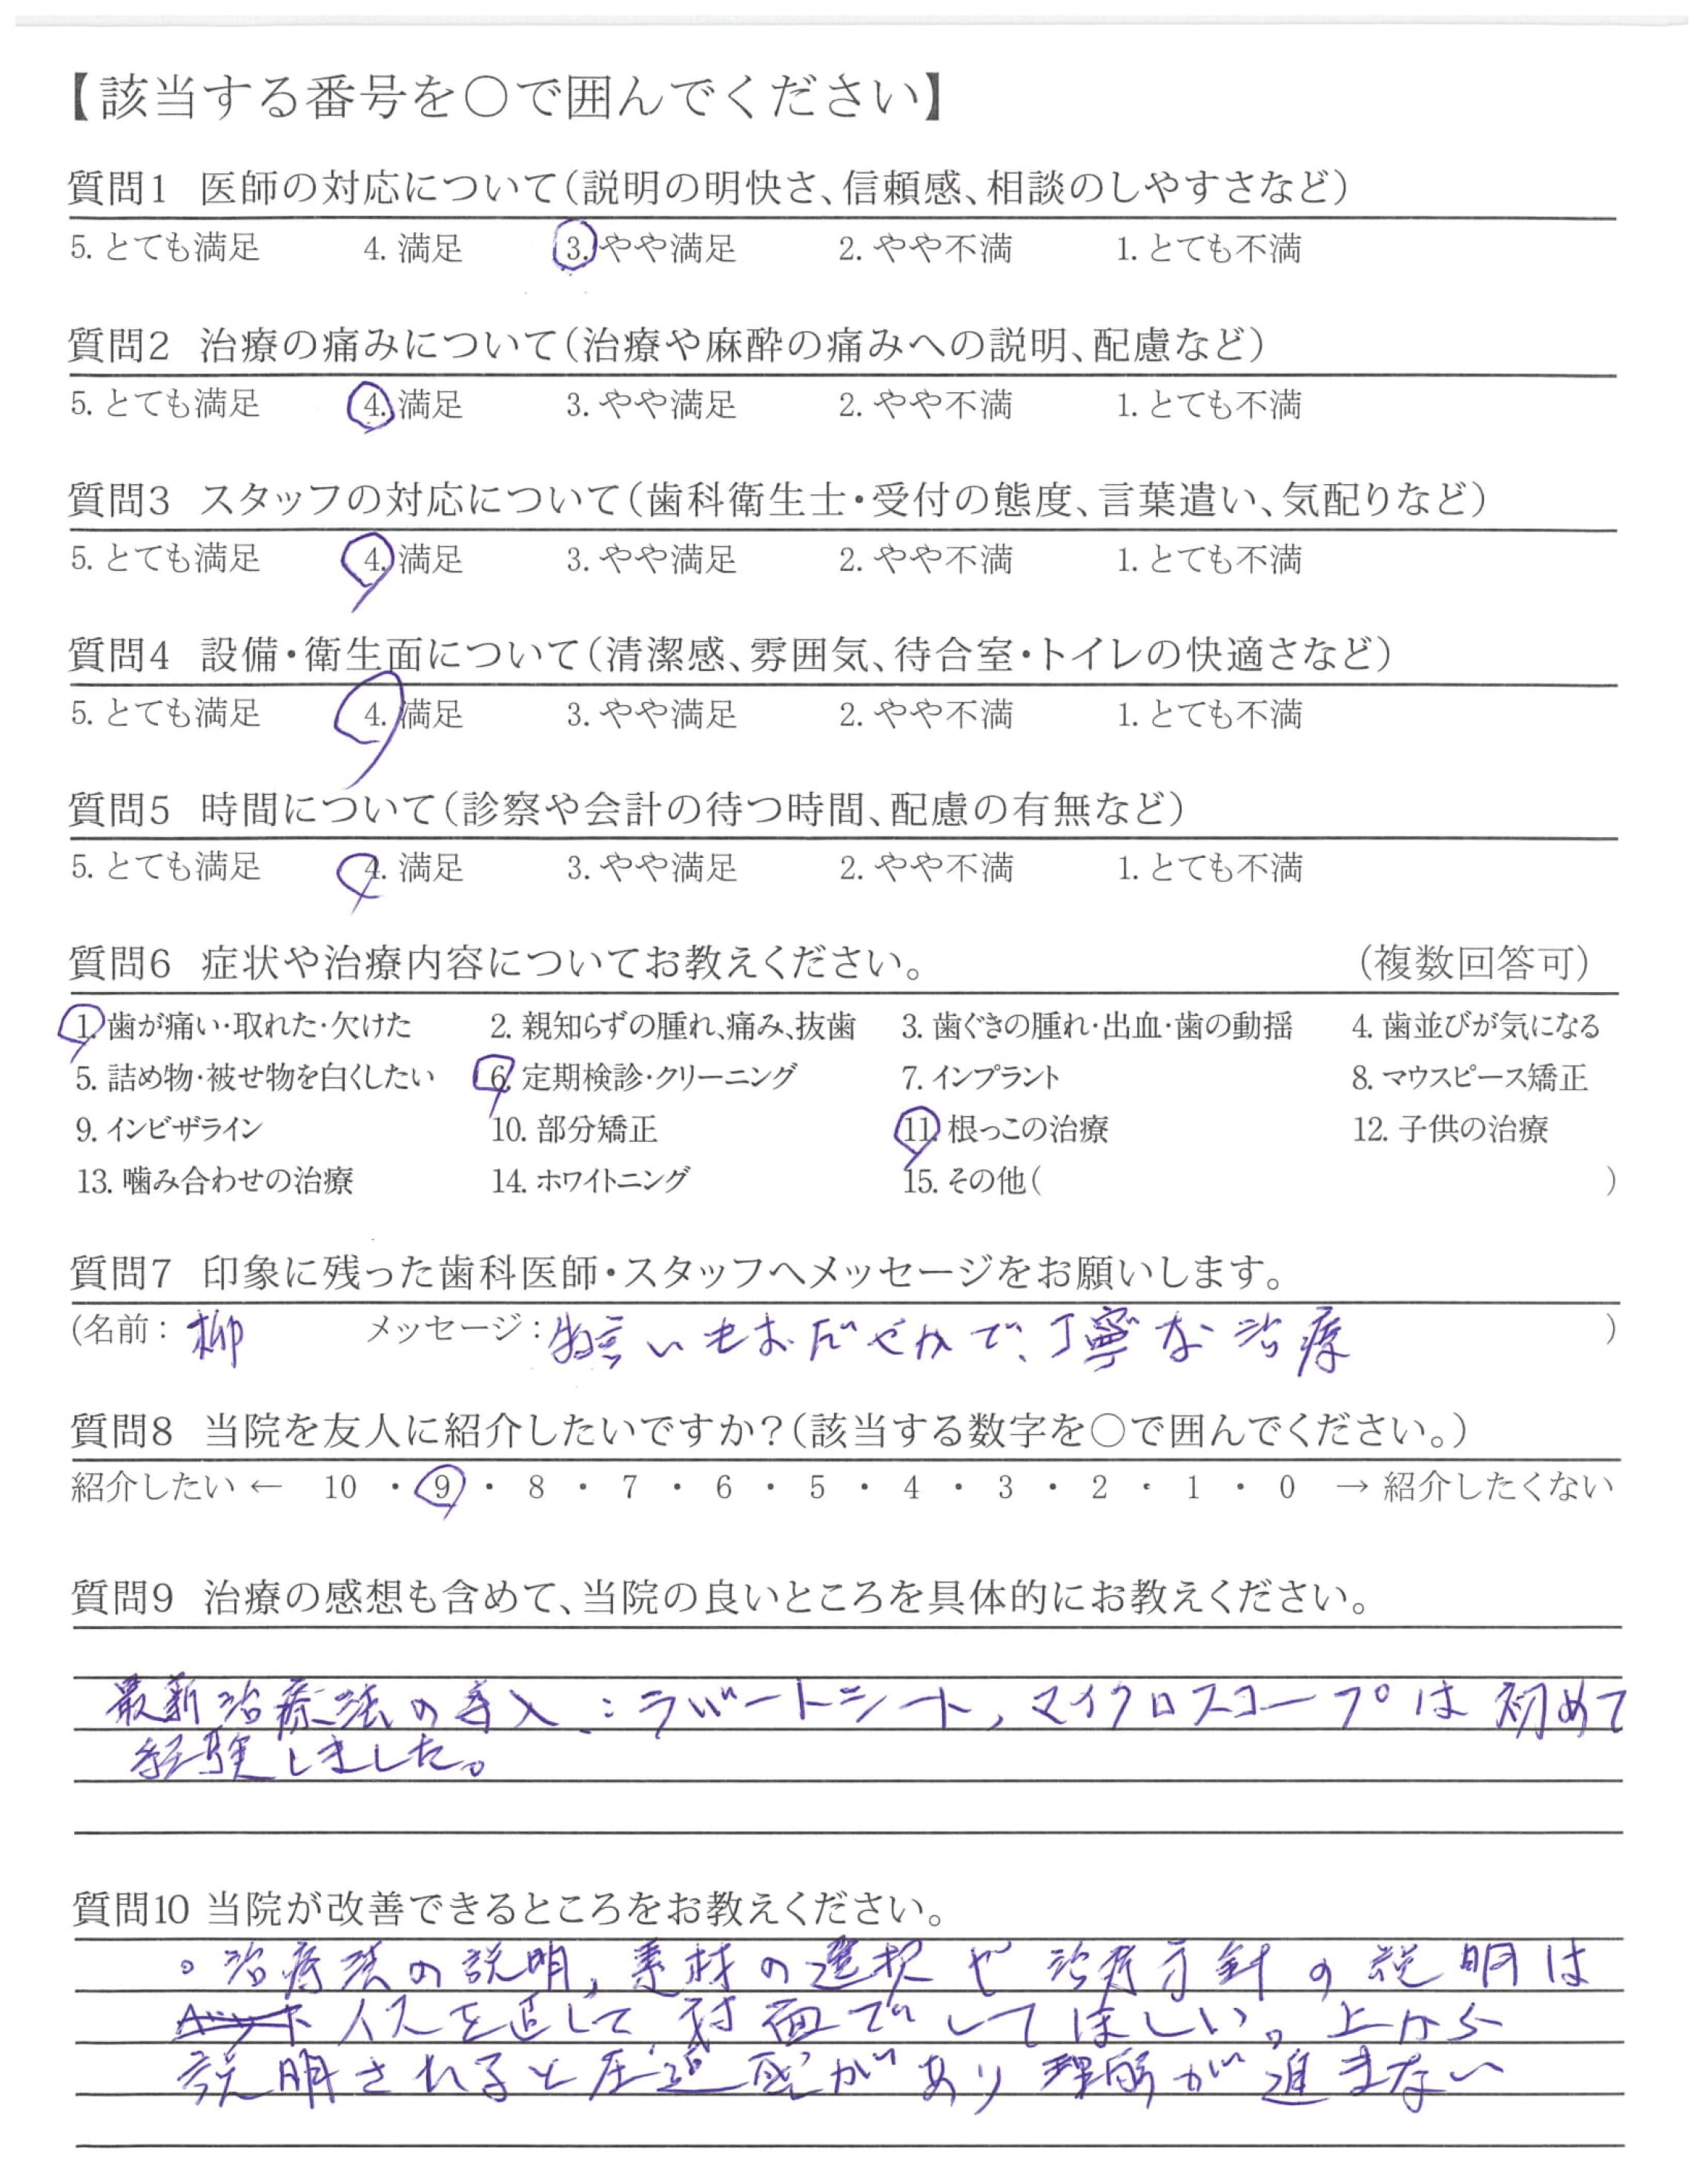 【該当する番号を○で囲んでください】
質問1 医師の対応について(説明の明快さ、信頼感、相談のしやすさなど)
5. とても満足 4. 満足 3. やや満足 2. やや不満 1. とても不満
質問2 治療の痛みについて(治療や麻酔の痛みへの説明、配慮など)
5. とても満足 4. 満足 3. やや満足 2. やや不満 1. とても不満
質問3 スタッフの対応について(歯科衛生士・受付の態度、言葉遣い、気配りなど)
5. とても満足 4. 満足 3. やや満足 2. やや不満 1. とても不満
質問4 設備・衛生面について(清潔感、雰囲気、待合室・トイレの快適さなど)
5. とても満足 4. 満足 3. やや満足 2. やや不満 1. とても不満
質問5 時間について(診察や会計の待つ時間、配慮の有無など)
5. とても満足 4. 満足 3. やや満足 2. やや不満 1. とても不満
質問6 症状や治療内容についてお教えください。 (複数回答可)
1. 歯が痛い・取れた・欠けた 2. 親知らずの腫れ、痛み、抜歯 3. 歯ぐきの腫れ・出血・歯の動揺 4. 歯並びが気になる
5. 詰め物・被せ物を白くしたい 6. 定期検診・クリーニング 7. インプラント 8. マウスピース矯正
9. インビザライン 10. 部分矯正 11. 根っこの治療 12. 子供の治療
13. 噛み合わせの治療 14. ホワイトニング 15. その他( )
質問7 印象に残った歯科医師・スタッフへメッセージをお願いします。
(名前: 柳 メッセージ: 物言いもおだやかで、丁寧な治療 )
質問8 当院を友人に紹介したいですか?(該当する数字を○で囲んでください。)
紹介したい ← 10 ・ 9 ・ 8 ・ 7 ・ 6 ・ 5 ・ 4 ・ 3 ・ 2 ・ 1 ・ 0 → 紹介したくない
質問9 治療の感想も含めて、当院の良いところを具体的にお教えください。
最新治療法の導入: ラバートシート, マイクロスコープは初めて
経験しました。
質問10 当院が改善できるところをお教えください。
。治療法の説明, 素材の選択や治療方針の説明は
イスを直して対面でしてほしい。上から
説明されると圧迫感があり理解が進まない